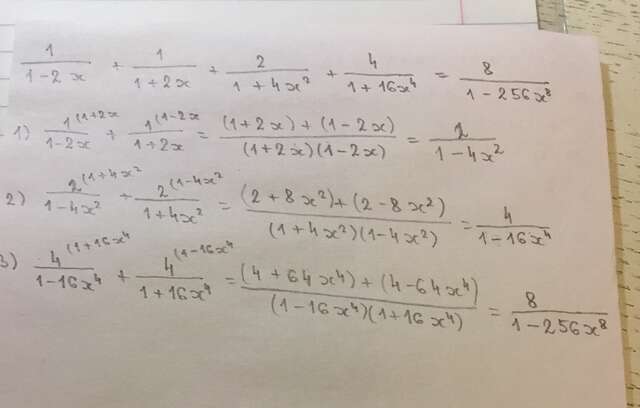 1/(1-2x) + 1/(1+2x) + 2/(1+4x²) + 4/(1+16x⁴) = 8/(1-256x⁸)
1) 1^(1+2x/(1-2x) + 1^(1-2x/(1+2x) = ((1+2x)+(1-2x))/((1+2x)(1-2x)) = 2/(1-4x²)
2) 2^(1+4x²/(1-4x²) + 2^(1-4x²/(1+4x²) = ((2+8x²)+(2-8x²))/((1+4x²)(1-4x²)) = 4/(1-16x⁴)
3) 4^(1+16x⁴/(1-16x⁴) + 4^(1-16x⁴/(1+16x⁴) = ((4+64x⁴)+(4-64x⁴))/((1-16x⁴)(1+16x⁴)) = 8/(1-256x⁸)